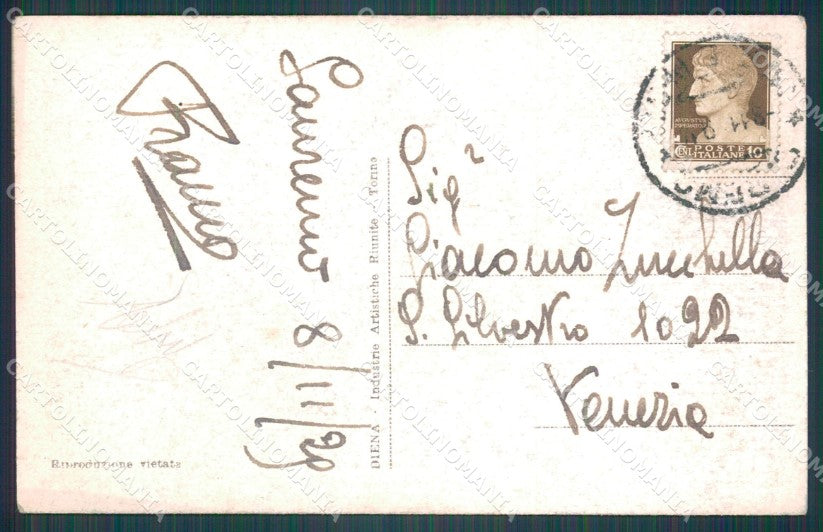 Sanremo 8/11/29
Franco
Sigʳ
Giacomo Zucchella
S. Silvestro 1022
Venezia
DIENA - Industrie Artistiche Riunite - Torino
Riproduzione vietata
AVGVSTVS
IMPERATOR
CENT. POSTE 10
ITALIANE
CARTOLINOMANIA